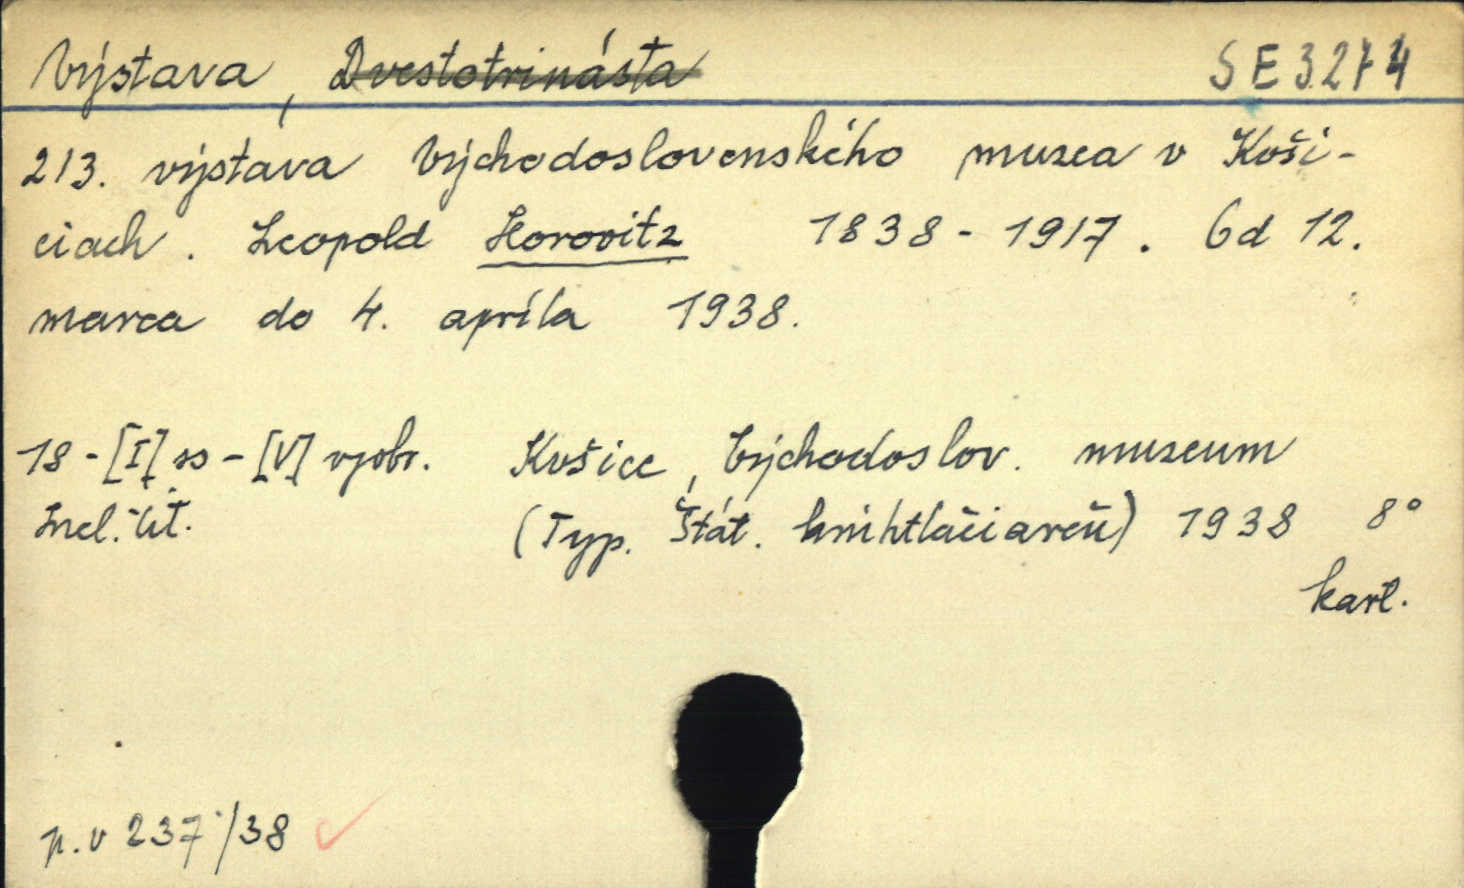 Výstava, Dvestotrinásta SE 3274
213. výstava Východoslovenského muzea v Koši-
ciach. Leopold Horovitz 1838-1917. Od 12.
marca do 4. apríla 1938.
18-[I] ss-[V] vyobr. Košice, Východoslov. muzeum
Incl. lit. (Typ. Štát. knihtlačiareň) 1938 8°
kart.
p. v 237/38